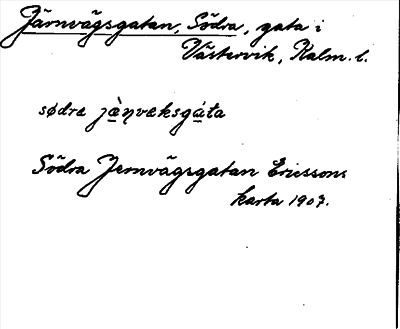 Järnvägsgatan, Södra, gata i
Västervik, Kalm. l.
södra jä̀ηvæksgáta
Södra Jernvägsgatan Ericssons
karta 1907.